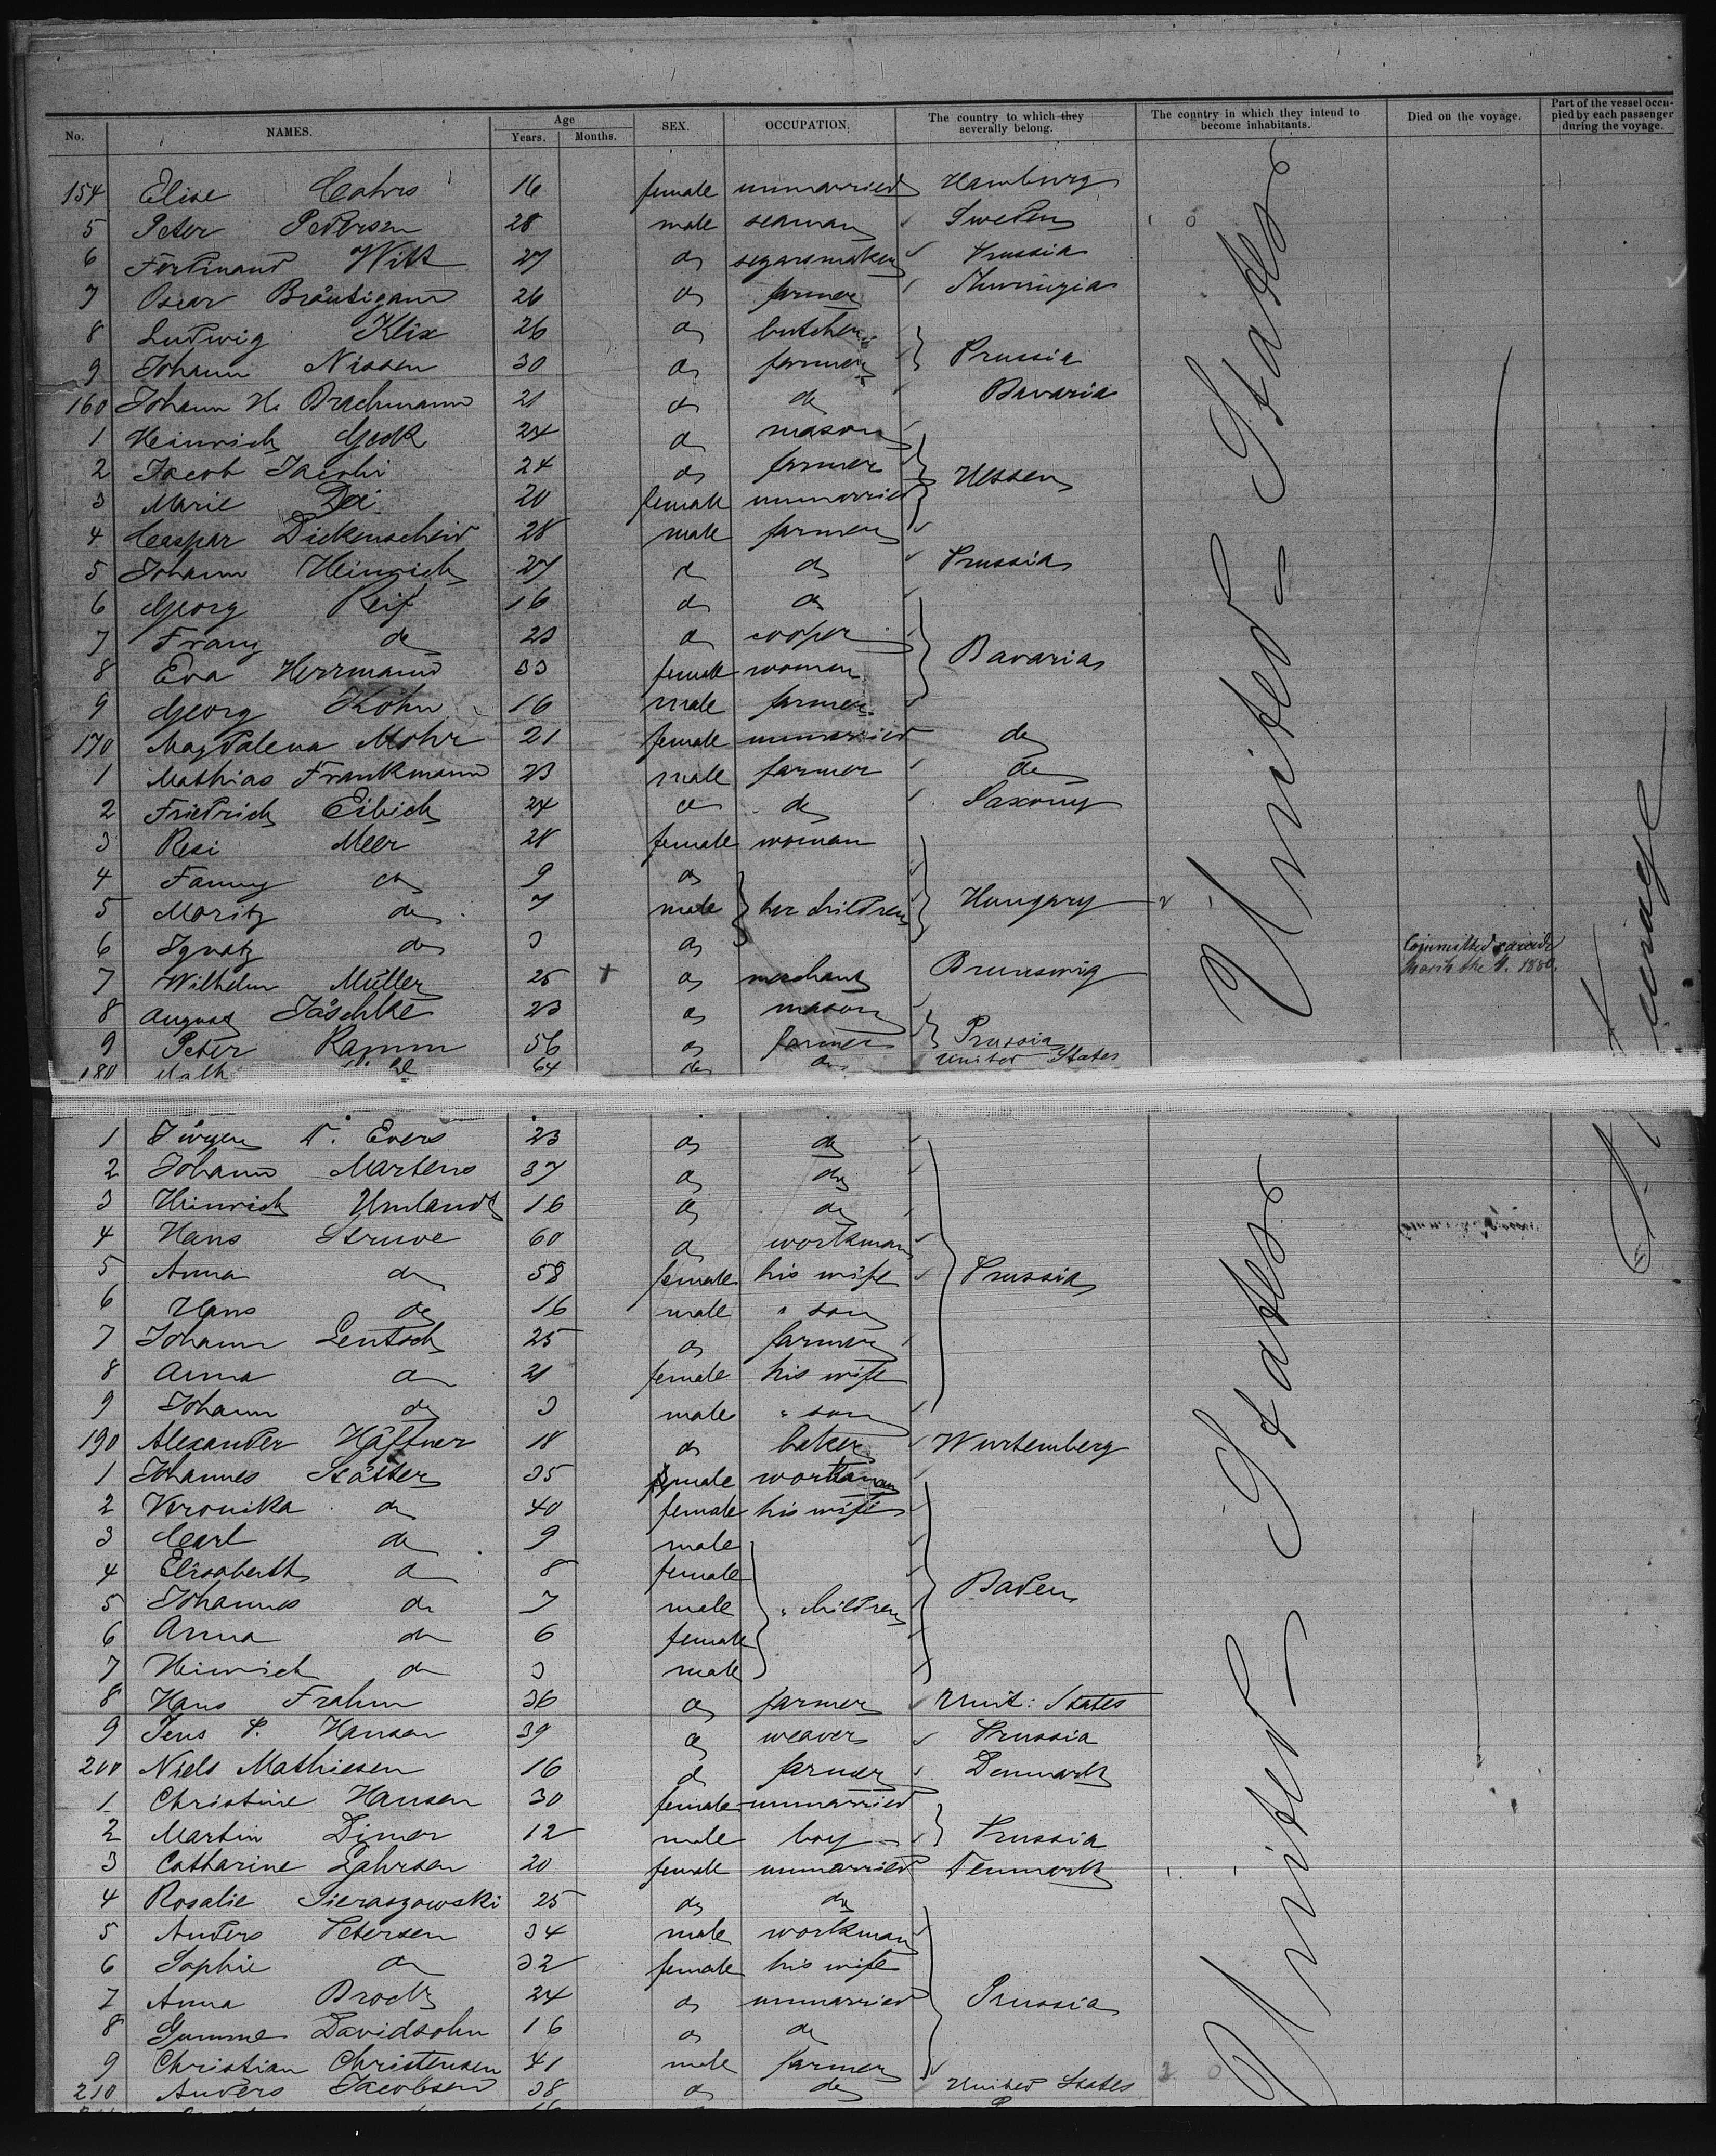 No. NAMES. Age Years. Months. SEX. OCCUPATION. The country to which they severally belong. The country in which they intend to become inhabitants. Died on the voyage. Part of the vessel occupied by each passenger during the voyage.
154 Elise Cohrs 16 female unmarried Hamburg
5 Peter Pedersen 28 male seaman Sweden
6 Ferdinand Witt 27 do segarsmaker Prussia
7 Oscar Bräutigam 26 do farmer Thuringia
8 Ludwig Klix 26 do butcher
9 Johann Nissen 30 do farmer Prussia
160 Johann H. Brachmann 21 do do Bavaria
1 Heinrich 24 do mason
2 Jacob Jacobi 24 do farmer Hessen
3 Marie 20 female unmarried
4 Caspar Dickenscheid 28 male farmer
5 Johann Heinrich 27 do do Prussia
6 Georg Reif 16 do do
7 Franz do 23 do cooper Bavaria
8 Eva Herrmann 33 female woman
9 Georg Köhn 16 male farmer
170 Magdalena Mohr 21 female unmarried do
1 Mathias Frankmann 23 male farmer do
2 Friedrich Eibich 24 do do Saxony
3 Resi Meer 28 female woman
4 Fanny do 9 do
5 Moritz do 7 male her children Hungary
6 Ignatz do 3 do
7 Wilhelm Müller 25 + do merchant Brunswig Committed suicide March the 4. 1880.
8 August Jäschke 23 do mason
9 Peter Ramm 56 do farmer Prussia
180 64 do do United States
1 Jürgen D. Evers 23 do do
2 Johann Martens 37 do do
3 Heinrich Umlandt 16 do do
4 Hans Struve 60 do workman
5 Anna do 58 female his wife Prussia
6 Hans do 16 male " son
7 Johann Lentsch 25 do farmer
8 Anna do 21 female his wife
9 Johann do 3 male " son
190 Alexander Häffner 18 do baker Wurtemberg
1 Johannes 35 male workman
2 Veronika do 40 female his wife
3 Carl do 9 male
4 Elisabeth do 8 female
5 Johannes do 7 male " children Baden
6 Anna do 6 female
7 Heinrich do 3 male
8 Hans Frahm 36 do farmer Unit: States
9 Jens P. Hansen 39 do weaver Prussia
200 Niels Mathiesen 16 do farmer Denmark
1 Christine Hansen 30 female unmarried
2 Martin Dimer 12 male boy Prussia
3 Catharine Lahrsen 20 female unmarried Denmark
4 Rosalie Sieraszowski 25 do do
5 Anders Petersen 34 male workman
6 Sophie do 32 female his wife
7 Anna Brodt 24 do unmarried Prussia
8 Gumme Davidsohn 16 do do
9 Christian Christensen 41 male farmer
210 Anders Jacobsen 38 do do United States
United States
United States